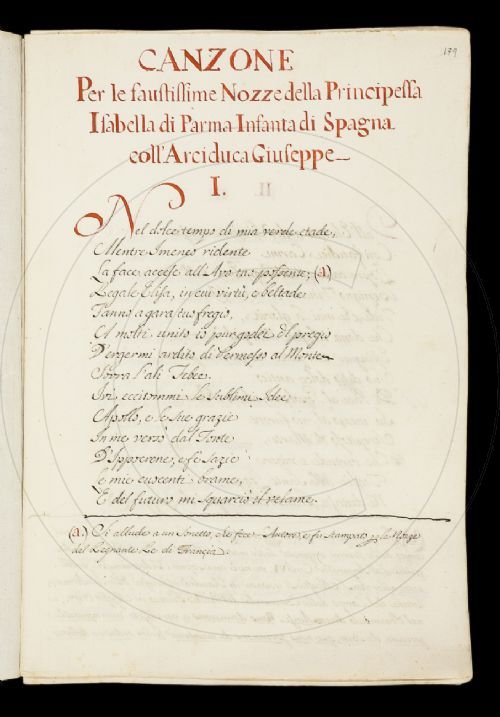 179
CANZONE
Per le faustissime Nozze della Principessa
Isabella di Parma Infanta di Spagna
coll'Arciduca Giuseppe
I.
Nel dolce tempo di mia verde etade,
Mentre Imeneo ridente
La face accese all'Avo tuo possente; (a)
Regale Elisa, in cui virtù, e beltade
Fanno a gara tuo fregio,
A molti unito io pur godei il pregio
D'ergermi ardito di Permesso al Monte
Sovra l'ali Febee.
Ivi eccitommi le sublimi Idee
Apollo, e le sue grazie
In me versò dal Fonte
D'Ippocrene, e fè sazie
Le mie cuocenti brame,
E del futuro mi squarciò il velame.
(a.) Si allude a un Sonetto, che fece l'Autore, e fu stampato per le Nozze
del Regnante Re di Francia.